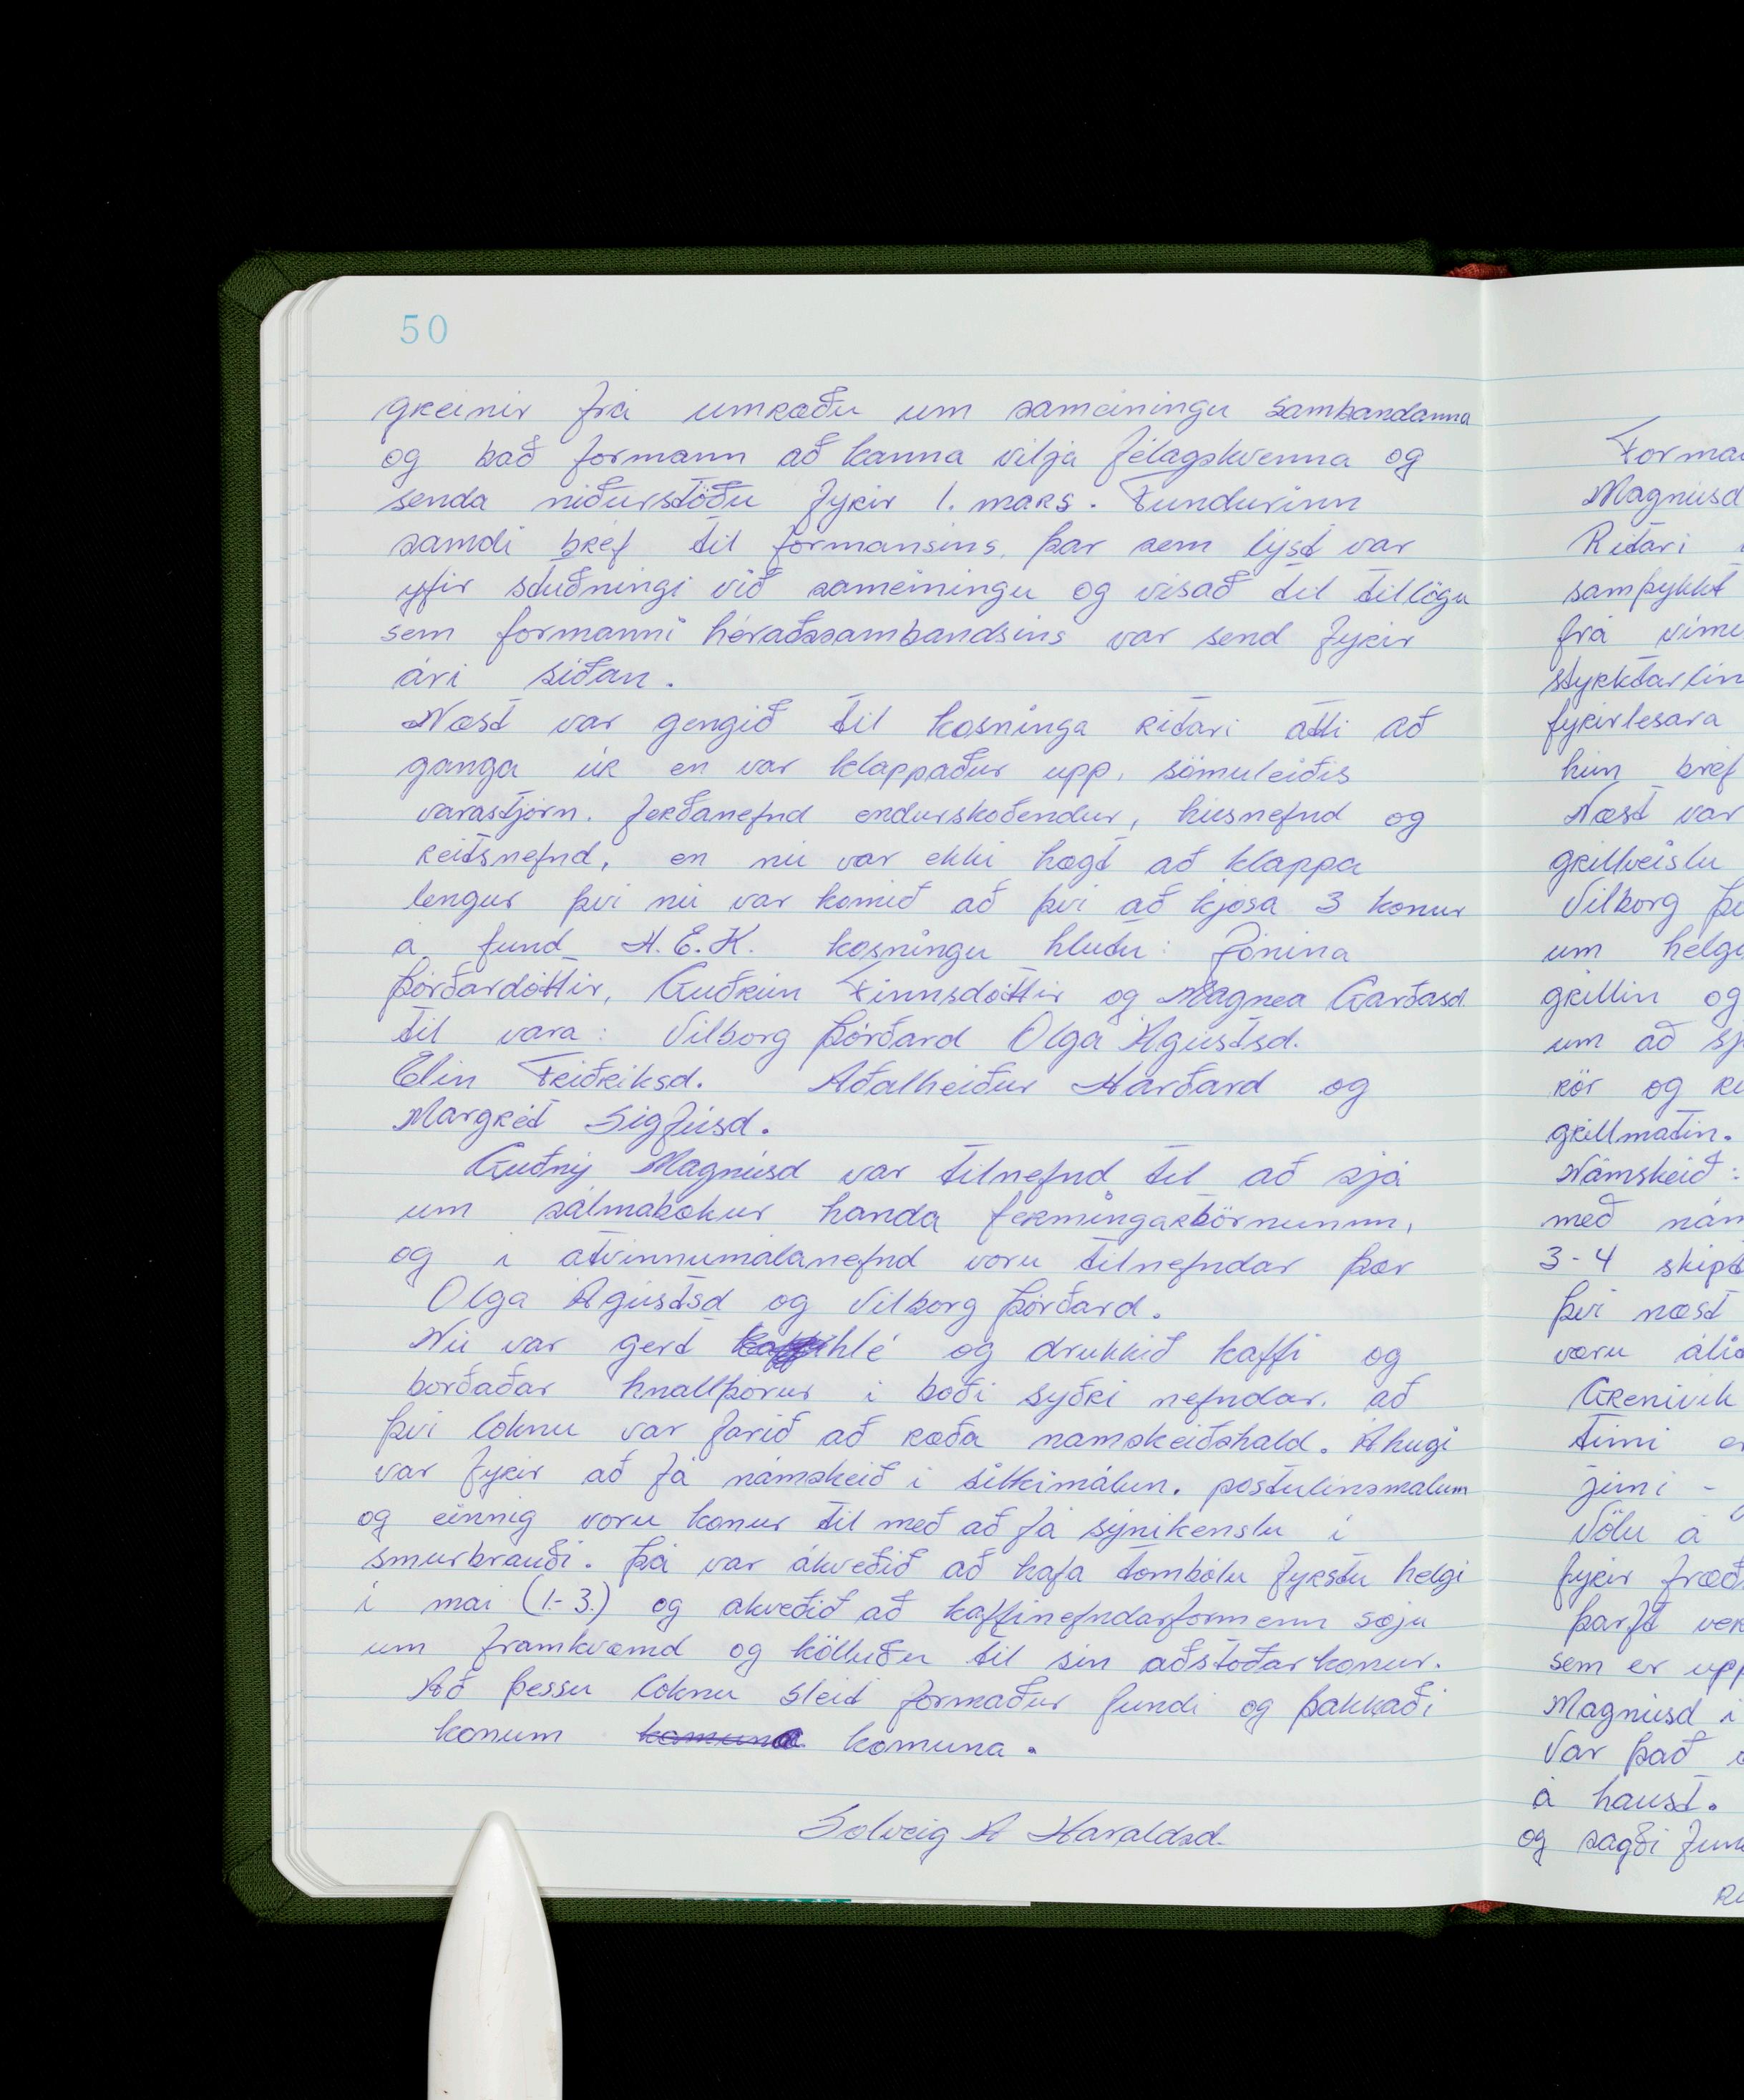 50
greinir frá umræðu um sameiningu sambandanna
og bað formann að kanna vilja félagskvenna og
senda niðurstöðu fyrir 1. mars. Fundurinn
samdi bréf til formansins, þar sem lýst var
yfir stuðningi við sameiningu og vísað til tillögu
sem formanni héraðssambandsins var send fyrir
ári síðan.
Næst var gengið til kosninga ritari átti að
ganga úr en var klappaður upp, sömuleiðis
varastjórn. ferðanefnd endurskoðendur, húsnefnd og
reitsnefnd, en nú var ekki hægt að klappa
lengur því nú var komið að því að kjósa 3 konur
á fund H.E.K. kosningu hlutu: Jónína
Þórðardóttir, Guðrún Finnsdóttir og Magnea Garðasd.
til vara: Vilborg Þórðard Olga Ágústsd.
Elín Friðriksd. Aðalheiður Harðard og
Margrét Sigfúsd.
Guðný Magnúsd var tilnefnd til að sjá
um sálmabækur handa fermingarbörnunum,
og í atvinnumálanefnd voru tilnefndar þær
Olga Ágústsd og Vilborg Þórðard.
Nú var gert kaffihlé og drukkið kaffi og
borðaðar hnallþórur í boði syðri nefndar. að
því loknu var farið að ræða námskeiðshald. Áhugi
var fyrir að fá námskeið í silkimálun. postulínsmálun
og einnig voru konur til með að fá sýnikenslu í
smurbrauði. Þá var ákveðið að hafa tombólu fyrstu helgi
í maí (1.-3.) og ákveðið að kaffinefndarformenn sæju
um framkvæmd og kölluðu til sín aðstoðarkonur.
Að þessu loknu sleit formaður fundi og þakkaði
konum komuna komuna.
Solveig A Haraldsd.
Forma
Magnúsd
Ritari
samþykkt
frá vímu
styrktarlín
fyrirlesara
hún bréf
Næst var
grillveislu
Vilborg Þó
um helg
grillin og
um að sj
rör og
grillmatin.
Námskeið:
með nám
3-4 skipt
því næst
voru áli
Grenivík
tími
júní -
Völu á
fyrir fræð
þarft ver
sem er upp
Magnúsd í
Var það
á haust.
og sagði fun